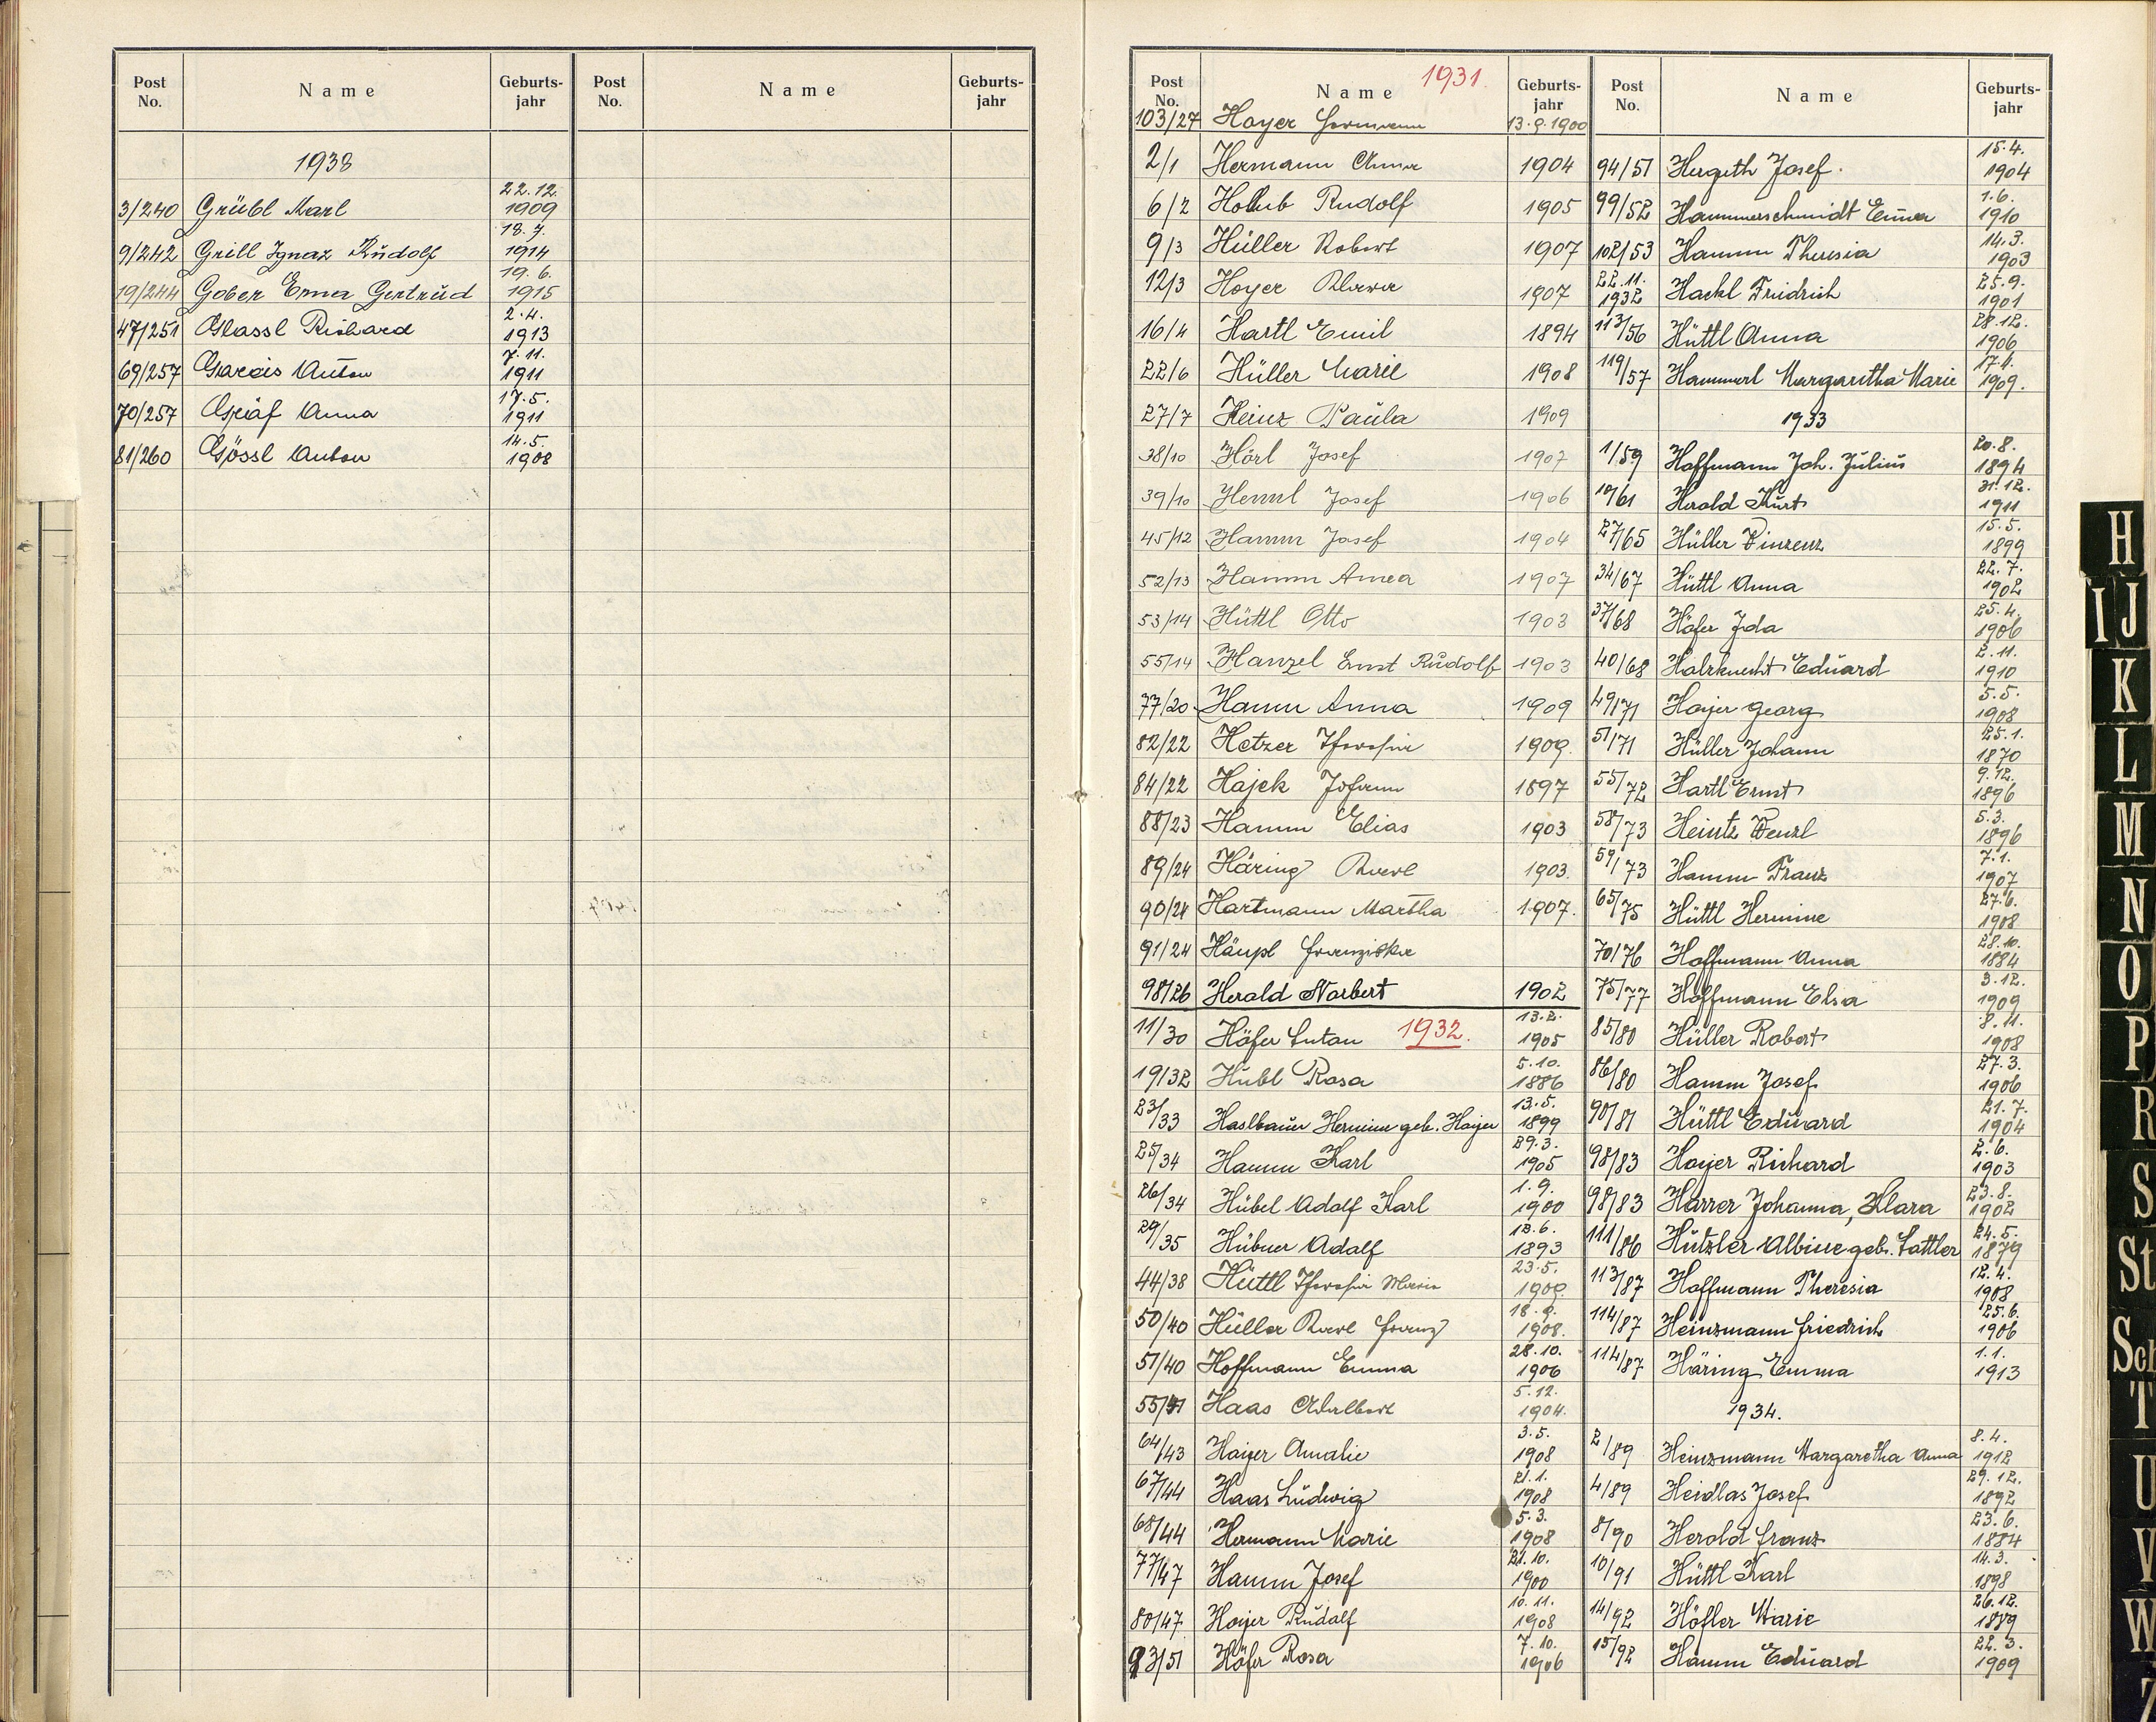 Post No. Name Geburts-jahr Post No. Name Geburts-jahr
1938
3/240 Grübl Karl 22.12. 1909
9/242 Grill Ignaz Rudolf 18.7. 1914
19/244 Gober Erna Gertrud 19.6. 1915
47/251 Glassl Richard 2.4. 1913
69/257 Gareis Anton 7.11. 1911
70/257 Gräf Anna 17.5. 1911
81/260 Gössl Anton 14.5. 1908
Post No. Name 1931. Geburts-jahr
103/27 Hoyer Hermann 13.9.1900
2/1 Hermann Anna 1904
6/2 Holub Rudolf 1905
9/3 Hüller Robert 1907
12/3 Hoyer Klara 1907
16/4 Hartl Emil 1894
22/6 Hüller Marie 1908
27/7 Heinz Paula 1909
38/10 Hörl Josef 1907
39/10 Heml Josef 1906
45/12 Hamm Josef 1904
52/13 Hamm Anna 1907
53/14 Hüttl Otto 1903
55/14 Hanzel Ernst Rudolf 1903
77/20 Hamm Anna 1909
82/22 Hetzer Theresia 1909.
84/22 Hajek Johann 1897
88/23 Hamm Elias 1903
89/24 Häring Karl 1903.
90/24 Hartmann Martha 1907.
91/24 Häupl Franziska
98/26 Herald Norbert 1902
11/30 Höfer Anton 1932. 13.2. 1905
19/32 Hubl Rosa 5.10. 1886
23/33 Haslbauer Hermine geb. Hoyer 13.5. 1899
25/34 Hamm Karl 29.3. 1905
26/34 Hübel Adolf Karl 1.9. 1900
29/35 Hübner Adolf 12.6. 1893
44/38 Hüttl Theresia Maria 23.5. 1909
50/40 Hüller Karl Franz 18.9. 1908.
51/40 Hoffmann Emma 28.10. 1906
55/41 Haas Adalbert 5.12. 1904.
64/43 Hoyer Amalie 3.5. 1908
67/44 Haas Ludwig 21.1. 1908
68/44 Hermann Marie 5.3. 1908
77/47 Hamm Josef 21.10. 1900
80/47 Hoyer Rudolf 10.11. 1908
93/51 Höfer Rosa 7.10. 1906
Post No. Name Geburts-jahr
94/51 Hergeth Josef 15.4. 1904
99/52 Hammerschmidt Emma 1.6. 1910
102/53 Hamm Theresia 14.3. 1903
22.11. 1932 Hackl Friedrich 25.9. 1901
113/56 Hüttl Anna 28.12. 1906
119/57 Hammerl Margaretha Marie 17.1. 1909.
1933
1/59 Hoffmann Joh. Julius 20.8. 1894
10/61 Herold Kurt 31.12. 1911
27/65 Hüller Vinzenz 15.5. 1899
34/67 Hüttl Anna 22.7. 1902
37/68 Höfer Ida 25.4. 1906
40/68 Holzknecht Eduard 2.11. 1910
49/71 Hoyer Georg 5.5. 1908
51/71 Hüller Johann 25.1. 1870
55/72 Hartl Ernst 9.12. 1896
58/73 Heintz Wenzl 5.3. 1896
59/73 Hamm Franz 7.1. 1907
65/75 Hüttl Hermine 27.6. 1908
70/76 Hoffmann Anna 28.10. 1884
75/77 Hoffmann Elsa 3.12. 1909
85/80 Hüller Robert 8.11. 1908
86/80 Hamm Josef 27.3. 1906
90/81 Hüttl Eduard 21.7. 1904
98/83 Hoyer Richard 2.6. 1903
98/83 Harrer Johanna, Klara 23.8. 1902
111/86 Hutzler Albine geb. Sattler 24.5. 1879
113/87 Hoffmann Theresia 12.4. 1908
114/87 Heinzmann Friedrich 25.6. 1906
114/87 Häring Emma 1.1. 1913
1934.
2/89 Heinzmann Margaretha Anna 8.4. 1912
4/89 Heidlas Josef 29.12. 1892
8/90 Herold Franz 23.6. 1884
10/91 Hüttl Karl 14.3. 1898
14/92 Höfler Marie 26.12. 1889
15/92 Hamm Eduard 22.3. 1909
H
IJ
K
L
M
N
O
P
R
S
St
Sch
T
U
V
W
Z